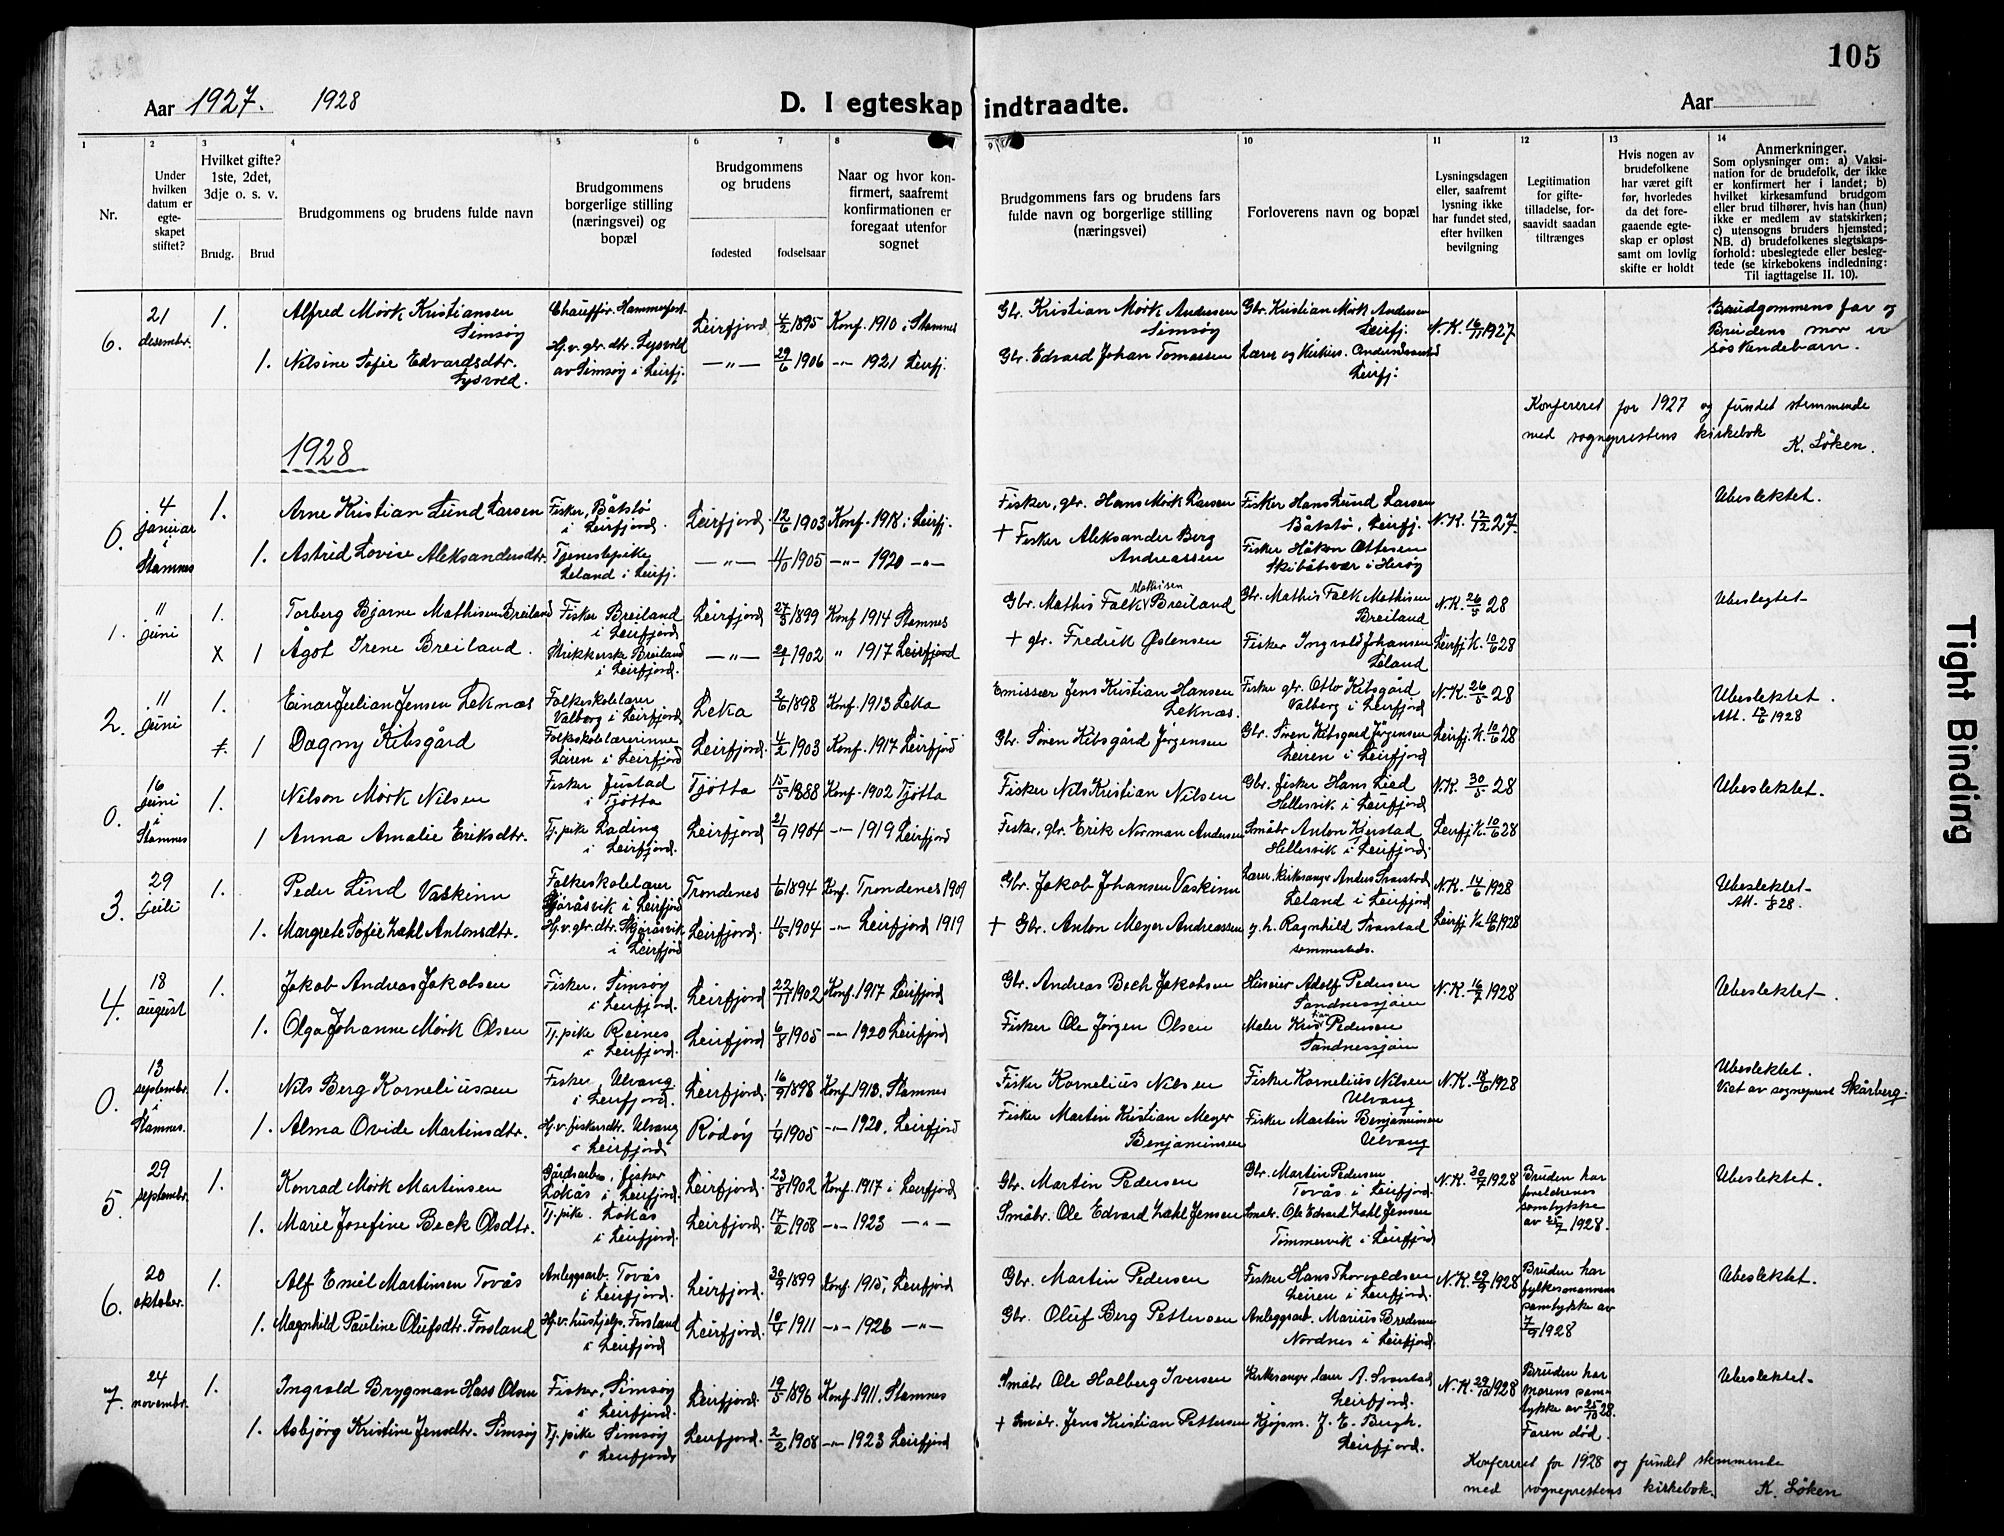 105
Aar 1927. 1928
D. I egteskap indtraadte.
Aar
1 2 3 4 5 6 7 8 10 11 12 13 14
Nr.
Under hvilken datum er egteskapet stiftet?
Hvilket gifte? 1ste, 2det, 3dje o. s. v.
Brudg. Brud
Brudgommens og brudens fulde navn
Brudgommens borgerlige stilling (næringsvei) og bopæl
Brudgommens og brudens
fødested fødselsaar
Naar og hvor konfirmert, saafremt konfirmationen er foregaat utenfor sognet
Brudgommens fars og brudens fars fulde navn og borgerlige stilling (næringsvei)
Forloverens navn og bopæl
Lysningsdagen eller, saafremt lysning ikke har fundet sted, efter hvilken bevilgning
Legitimation for giftetilladelse, forsaavidt saadan tiltrænges
Hvis nogen av brudefolkene har været gift før, hvorledes da det foregaaende egteskap er opløst samt om lovlig skifte er holdt
Anmerkninger.
Som oplysninger om: a) Vaksination for de brudefolk, der ikke er konfirmert her i landet; b) hvilket kirkesamfund brudgom eller brud tilhører, hvis han (hun) ikke er medlem av statskirken; c) utensogns bruders hjemsted; NB. d) brudefolkenes slegtskapsforhold: ubeslegtede eller beslegtede (se kirkebokens indledning: Til iagttagelse II. 10).
6. 21 desembr. 1. Alfred Mørk Kristiansen Simsøy Chauffør. Hammerfest Leirfjord 4/2 1895 Konf. 1910 i Stamnes Gbr. Kristian Mørk Andersen Simsøy Gbr. Kristian Mørk Andersen Leirfj. N.K. 16/11 1927 Brudgommens far og Brudens mor er søskendebarn.
1. Nilsine Sofie Edvardsdtr. Lysvold. Hj.v. gbr. dtr. Lysvold av Simsøy i Leirfj. —"— 29/6 1906 —"— 1921 Leirfj. Gbr. Edvard Johan Tomassen Lærer og Kirkes. Leirfj.
Konfereret for 1927 og fundet stemmende
med sogneprestens kirkebok K. Løken.
1928
0. 4 januar i Stamnes 1. Arne Kristian Lund Larsen Fisker, Båtstø i Leirfjord. Leirfjord. 12/6 1903 Konf. 1918 i Leirfj. Fisker, gbr. Hans Mørk Larsen Fisker Hans Lund Larsen Båtstø, Leirfj. N.K. 12/12 27. Ubeslektet.
1. Astrid Lovise Aleksandersdtr. Tjenestepike Leland i Leirfj. —"— 1905 —"— 1920 —"— + Fisker Aleksander Berg Andreassen Fisker Håkon Ottesen Skibåtvær i Herøy
1. 11 juni 1. Torberg Bjarne Mathisen Breiland Fisker Breiland i Leirfjord Leirfjord 27/5 1899 Konf 1914 Stamnes Gbr. Mathis Falk Mathisen Breiland Gbr. Mathis Falk Mathisen Breiland N.K. 26/5 28 Ubeslegtet
X 1 Ågot Irene Breiland. Strikkerske Breiland i Leirfjord. —"— 1902 " 1917 Leirfjord + gbr. Fredrik Østensen Fisker Ingvald Johansen Leland Leirfj. K. 10/6 28
2. 11 juni 1. Einar Julian Jensen Leknæs Folkeskolelærer Valberg i Leirfjord Leka 2/6 1898 Konf. 1913 Leka Emissær Jens Kristian Hansen Leknæs. Fisker gbr. Otto Kibsgård Valberg i Leirfjord N.K. 26/5 28 Ubeslektet. Att. 1928
1 Dagny Kibsgård Folkeskolelærerinne Leiren i Leirfjord Leirfjord. 4/2 1903 Konf. 1917 Leirfjord Gbr. Søren Kibsgård Jørgensen Gbr. Søren Kibsgård Jørgensen Leiren i Leirfjord Leirfj. K. 10/6 28
0. 16 juni i Stamnes 1. Nilson Mørk Nilsen Fisker Justad i Tjøtta Tjøtta 15/5 1888 Konf. 1902 Tjøtta Fisker Nils Kristian Nilsen Gbr. fisker Hans Lied Hellesvik i Leirfjord N.K. 30/5 28 Ubeslektet.
1 Anna Amalie Eriksdtr. Tj. pike Lading i Leirfjord. Leirfjord 21/9 1904 —"— 1919 Leirfjord Fisker, gbr. Erik Norman Andersen Småbr. Anton Hellesvik i Leirfjord. Leirfj. K. 10/6 28
3. 29 juli 1. Peder Lind Vaskinn Folkeskolelærer i Leirfjord Trondenes 1/6 1894 Konf. Trondenes 1909 Gbr. Jakob Johansen Vaskinn Lærer, kirkesanger Anders Svarstad Leland i Leirfjord N.K. 14/6 1928 Ubeslektet Att. 1/8 28.
1. Margrete Sofie Zakl Antonsdtr. Hj.v. gbr. dtr. i Leirfjord Leirfjord. 11/5 1904 —"— Leirfjord 1919 + Gbr. Anton Meyer Andreassen g. h. Ragnhild Svarstad sammesteds. Leirfj K. 1928
4. 18 august 1. Jakob Andreas Jakobsen Fisker. Simsøy i Leirfjord. Leirfjord 22/11 1902 Konf. 1917 Leirfjord Gbr. Andreas Bech Jakobsen Huseier Adolf Pedersen Sandnessjøen N.K. 16/7 1928 Ubeslektet.
1. Olga Johanne Mørk Olsen Tj. pike Reines i Leirfjord. Leirfjord 6/8 1905 —"— 1920 Leirfjord Fisker Ole Jørgen Olsen Maler Kristian Pedersen Sandnessjøen
0. 13 septembr. i Stamnes. 1. Nils Berg Korneliussen Fisker, Ulvang i Leirfjord. Leirfjord. 16/9 1898 Konf. 1913. Stamnes Fisker Kornelius Nilsen Fisker Kornelius Nilsen Ulvang N.K. 18/6 1928 Ubeslektet. Viet av sogneprest Skårberg.
1. Alma Ovide Martinsdtr. Hj.v. fiskersdtr. Ulvang i Leirfjord Rødøy 1/4 1905 —"— 1920. Leirfjord Fisker Martin Kristian Meyer Benjaminsen Fisker Martin Benjaminsen Ulvang
5. 29 septembr. 1. Konrad Mørk Martinsen Gårdsarb., fisker Lokås i Leirfjord. Leirfjord. 23/8 1902 Konf. 1917 i Leirfjord Gbr. Martin Pedersen Gbr. Martin Pedersen Tovås i Leirfjord. N.K. 30/7 1928 Bruden har foreldrenes samtykke av 25/7 1928. Ubeslektet.
1. Marie Josefine Beck Olsdtr. Tj. pike. Lokås i Leirfjord. Leirfjord. 17/2 1908 —"— 1923 —"— Småbr. Ole Edvard Zakl Jensen Småbr. Ole Edvard Zakl Jensen Tømmervik i Leirfjord
6. 20 oktober. 1. Alf Emil Martinsen Tovås Anleggsarb. Tovås i Leirfjord. Leirfjord. 30/9 1899 Konf. 1915, Leirfjord Gbr. Martin Pedersen Fisker Hans Thorvaldsen Leiren i Leirfjord. N.K. 29/9 1928 Bruden har fylkesmannens samtykke av 7/9 1928 Ubeslektet.
1. Magnhild Pauline Olufsdtr. Forsland Hj.v. hushjelp. Forsland i Leirfjord Leirfjord. 10/4 1911 —"— 1926 —"— Gbr. Oluf Berg Pettersen Anleggsarb. Marius Bredesen Nordnes i Leirfjord.
7. 24 novembr. 1. Ingvald Brygman Hass Olsen Fisker, Simsøy i Leirfjord. Leirfjord. 19/5 1896 Konf. 1911. Stamnes Småbr Ole Holberg Iversen Kirkesanger lærer A. Svarstad Leirfjord. N.K. 29/10 1928 Bruden har morens samtykke av 25/10 28. Faren død. Ubeslektet
1. Asbjørg Kristine Jensdtr. Simsøy Tj. pike Simsøy i Leirfjord Leirfjord. 2/2 1908 —"— 1923 Leirfjord + Småbr. Jens Kristian Pettersen Kjøpm. J. E. Bergh. Leirfjord.
Konfereret for 1928 og fundet stemmende
med sogneprestens kirkebok. K. Løken
Tight Binding